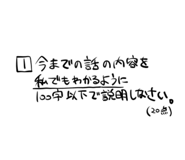 1 今までの話の内容を
私でもわかるように
100字以下で説明しなさい。
(20点)